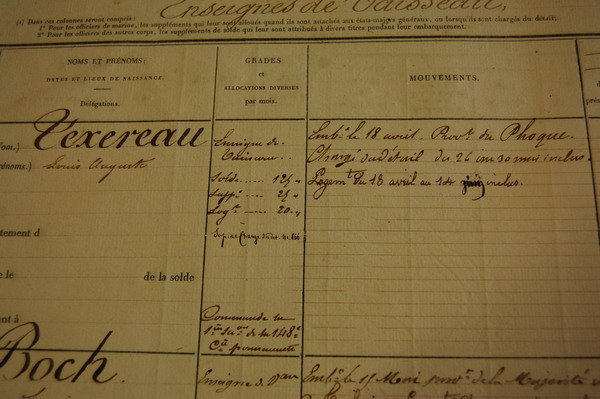 Enseignes de Vaisseau,
(1) Dans ces colonnes seront compris :
1° Pour les officiers de marine, les suppléments qui leur sont alloués quand ils sont attachés aux états-majors généraux, ou lorsqu'ils sont chargés du détail;
2° Pour les officiers des autres corps, les suppléments de solde qui leur sont attribués à divers titres pendant leur embarquement.
NOMS ET PRÉNOMS;
DATES ET LIEUX DE NAISSANCE.
Délégations.
GRADES
et
ALLOCATIONS DIVERSES
par mois.
MOUVEMENTS.
Nom.) Texereau
prénoms.) Louis Auguste
Enseigne de
Vaisseau
Solde 125 "
Supp.t 25 "
Log.t 20 "
Emb.é le 18 avril. Prov.t du Phoque.
Chargé du détail du 26 au 30 mai inclus.
Logem.t du 18 avril au 14 juin inclus.
tement d
e le de la solde
Commande la
1ère de la 148e
Cie
Boch.
Enseigne de Vau
Emb.é le 15 Mai prov.t de la Majorité